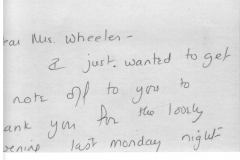 ear Mrs. Wheeler -
I just wanted to get
note off to you to
ank you for the lovely
pening last monday night